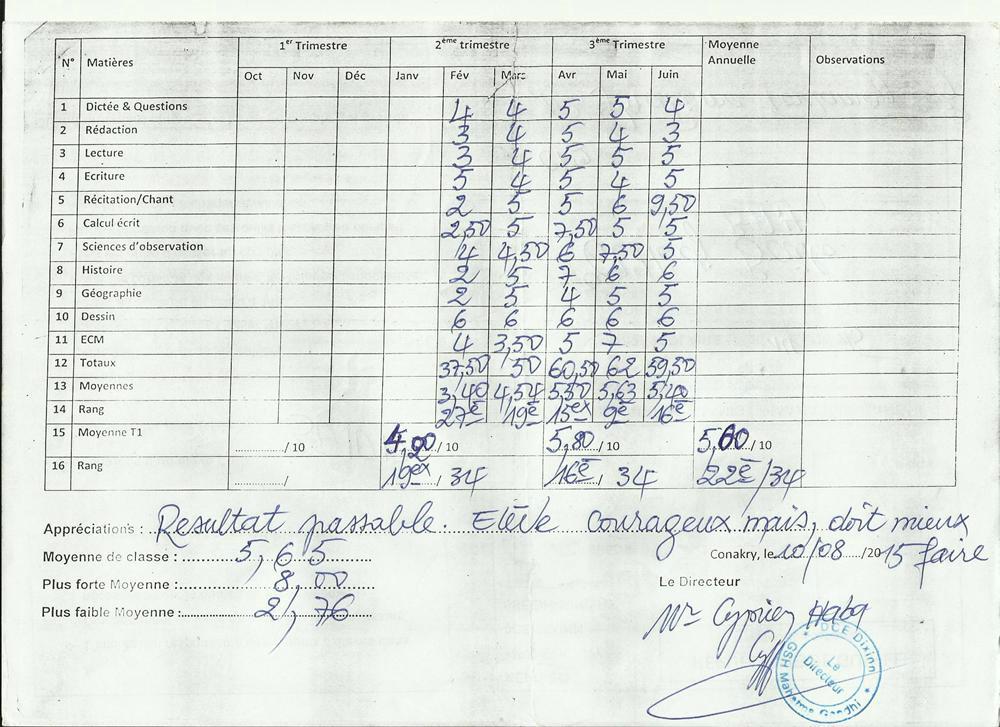 N° Matières 1er Trimestre 2ème trimestre 3ème Trimestre Moyenne Annuelle Observations
Oct Nov Déc Janv Fév Mars Avr Mai Juin
1 Dictée & Questions 4 4 5 5 4
2 Rédaction 3 4 5 4 3
3 Lecture 3 4 5 5 5
4 Ecriture 5 4 5 4 5
5 Récitation/Chant 2 5 5 6 9,50
6 Calcul écrit 2,50 5 7,50 5 5
7 Sciences d'observation 4 4,50 6 7,50 5
8 Histoire 2 5 7 6 6
9 Géographie 2 5 4 5 5
10 Dessin 6 6 6 6 6
11 ECM 4 3,50 5 7 5
12 Totaux 37,50 50 60,50 62 59,50
13 Moyennes 3,40 4,54 5,50 5,63 5,40
14 Rang 27è 19è 15ex 9è 16è
15 Moyenne T1 ............../ 10 / 10 5,80/ 10 5,60/ 10
16 Rang ............../ 19ex/ 34 16è/ 34 22è/34
Appréciations : Resultat passable. Elève courageux mais, doit mieux
faire
Moyenne de classe : 5,65 Conakry, le 10/08/2015
Plus forte Moyenne : 8,00 Le Directeur
Plus faible Moyenne : 2,76
Mr Cyprien Haba
DCE Dixinn
Le Directeur
GSH Mahatma Gandhi